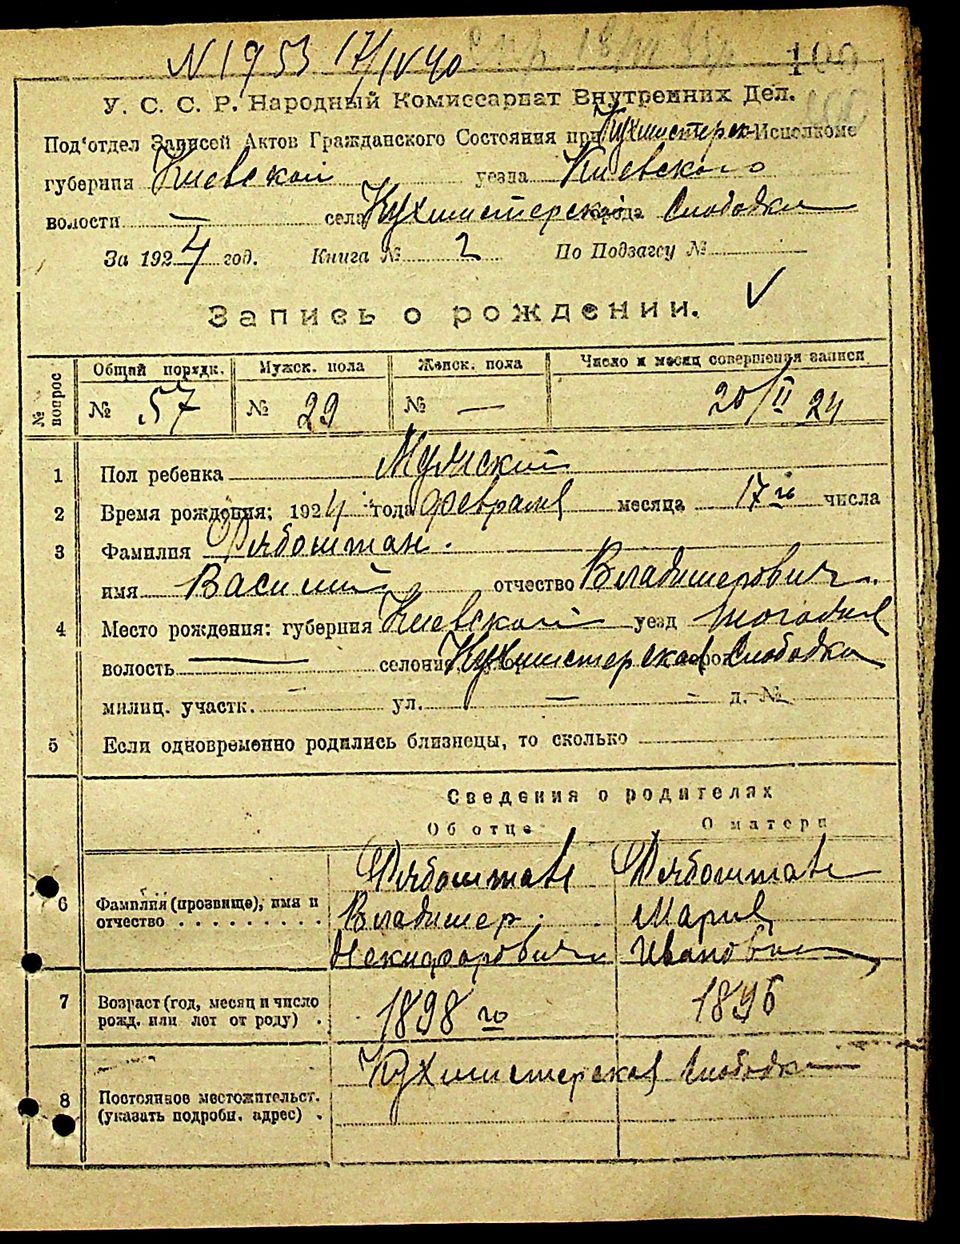 N 1953 17/IV 40
100
У. С. С. Р. Народный Комиссариат Внутренних Дел.
Под'отдел Записей Актов Гражданского Состояния при Кухмистерск-Исполкоме
губернии Киевской уезда Киевского
волости — села Кухмистерской города Слободки
За 1924 год. Книга № 2 По Подзагсу №
Запись о рождении.
№ вопрос Общий порядк. Мужск. пола Женск. пола Число и месяц совершения записи
№ 57 № 29 № — 20/II 24
1 Пол ребенка Мужский
2 Время рождения: 1924 года февраля месяца 17го числа
3 Фамилия Рябоштан.
имя Василий отчество Владимерович.
4 Место рождения: губерния Киевской уезд тогоже
волость — селение Кухмистерская Слободка
милиц. участк. ул. — д. №
5 Если одновременно родились близнецы, то сколько
Сведения о родителях
Об отце О матери
Рябоштан Рябоштан
6 Фамилия (прозвище), имя и отчество Владимер Мария
Некифорович Ивановна
7 Возраст (год, месяц и число рожд. или лет от роду) 1898 го 1896
Кухмистерская Слободка
8 Постоянное местожительст. (указать подробн. адрес)